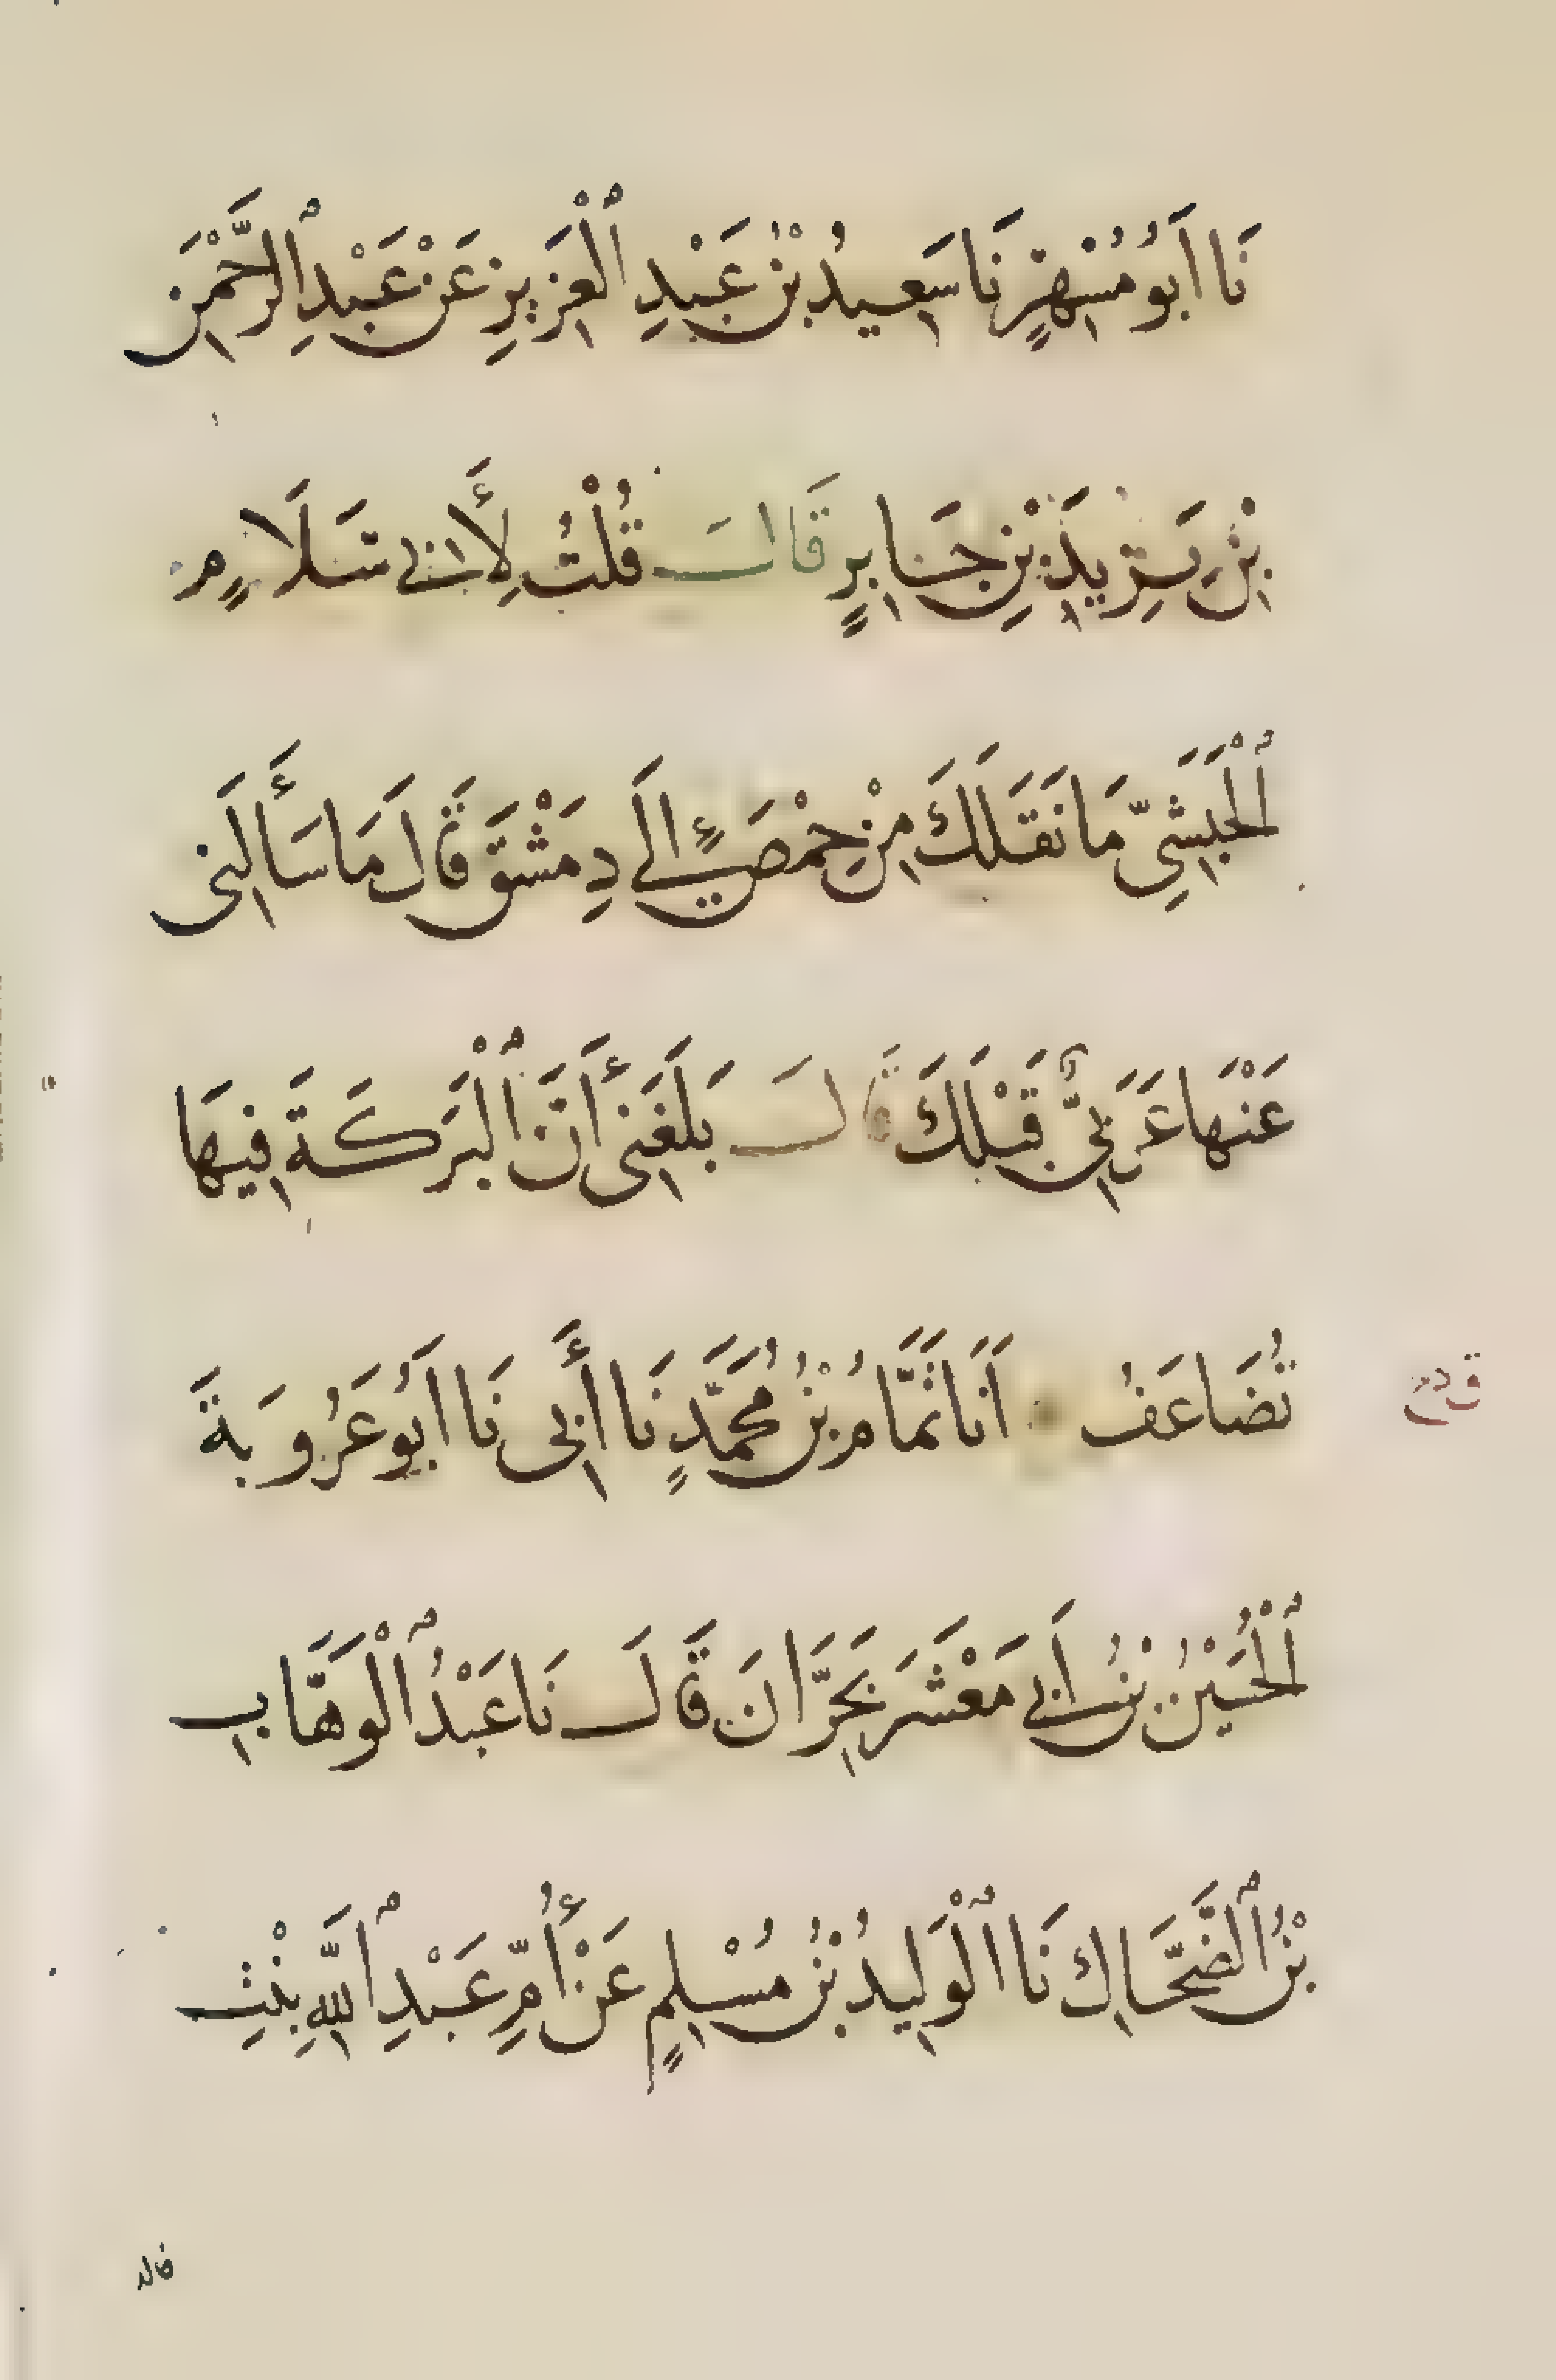 نَا أَبُو مُسْهِرٍ نَا سَعِيدُ بْنُ عَبْدِ ٱلْعَزِيزِ عَنْ عَبْدِ ٱلرَّحْمٰنِ
بْنِ يَزِيدَ بْنِ جَابِرٍ قَالَ قُلْتُ لِأَبِي سَلَّامٍ
ٱلْحَبَشِيِّ مَا نَقَلَكَ مِنْ حِمْصَ إِلَى دِمَشْقَ قَالَ مَا سَأَلَنِي
عَنْهَا عَرَبِيٌّ قَبْلَكَ قَالَ بَلَغَنِي أَنَّ ٱلْبَرَكَةَ فِيهَا
تُضَاعَفُ أَنَا تَمَّامُ بْنُ مُحَمَّدٍ نَا أَبِي نَا أَبُو عَرُوبَةَ
ٱلْحُسَيْنُ بْنُ أَبِي مَعْشَرَ بِحَرَّانَ قَالَ نَا عَبْدُ ٱلْوَهَّابِ
بْنُ ٱلضَّحَّاكِ نَا ٱلْوَلِيدُ بْنُ مُسْلِمٍ عَنْ أُمِّ عَبْدِ ٱللَّهِ بِنْتِ
خالد